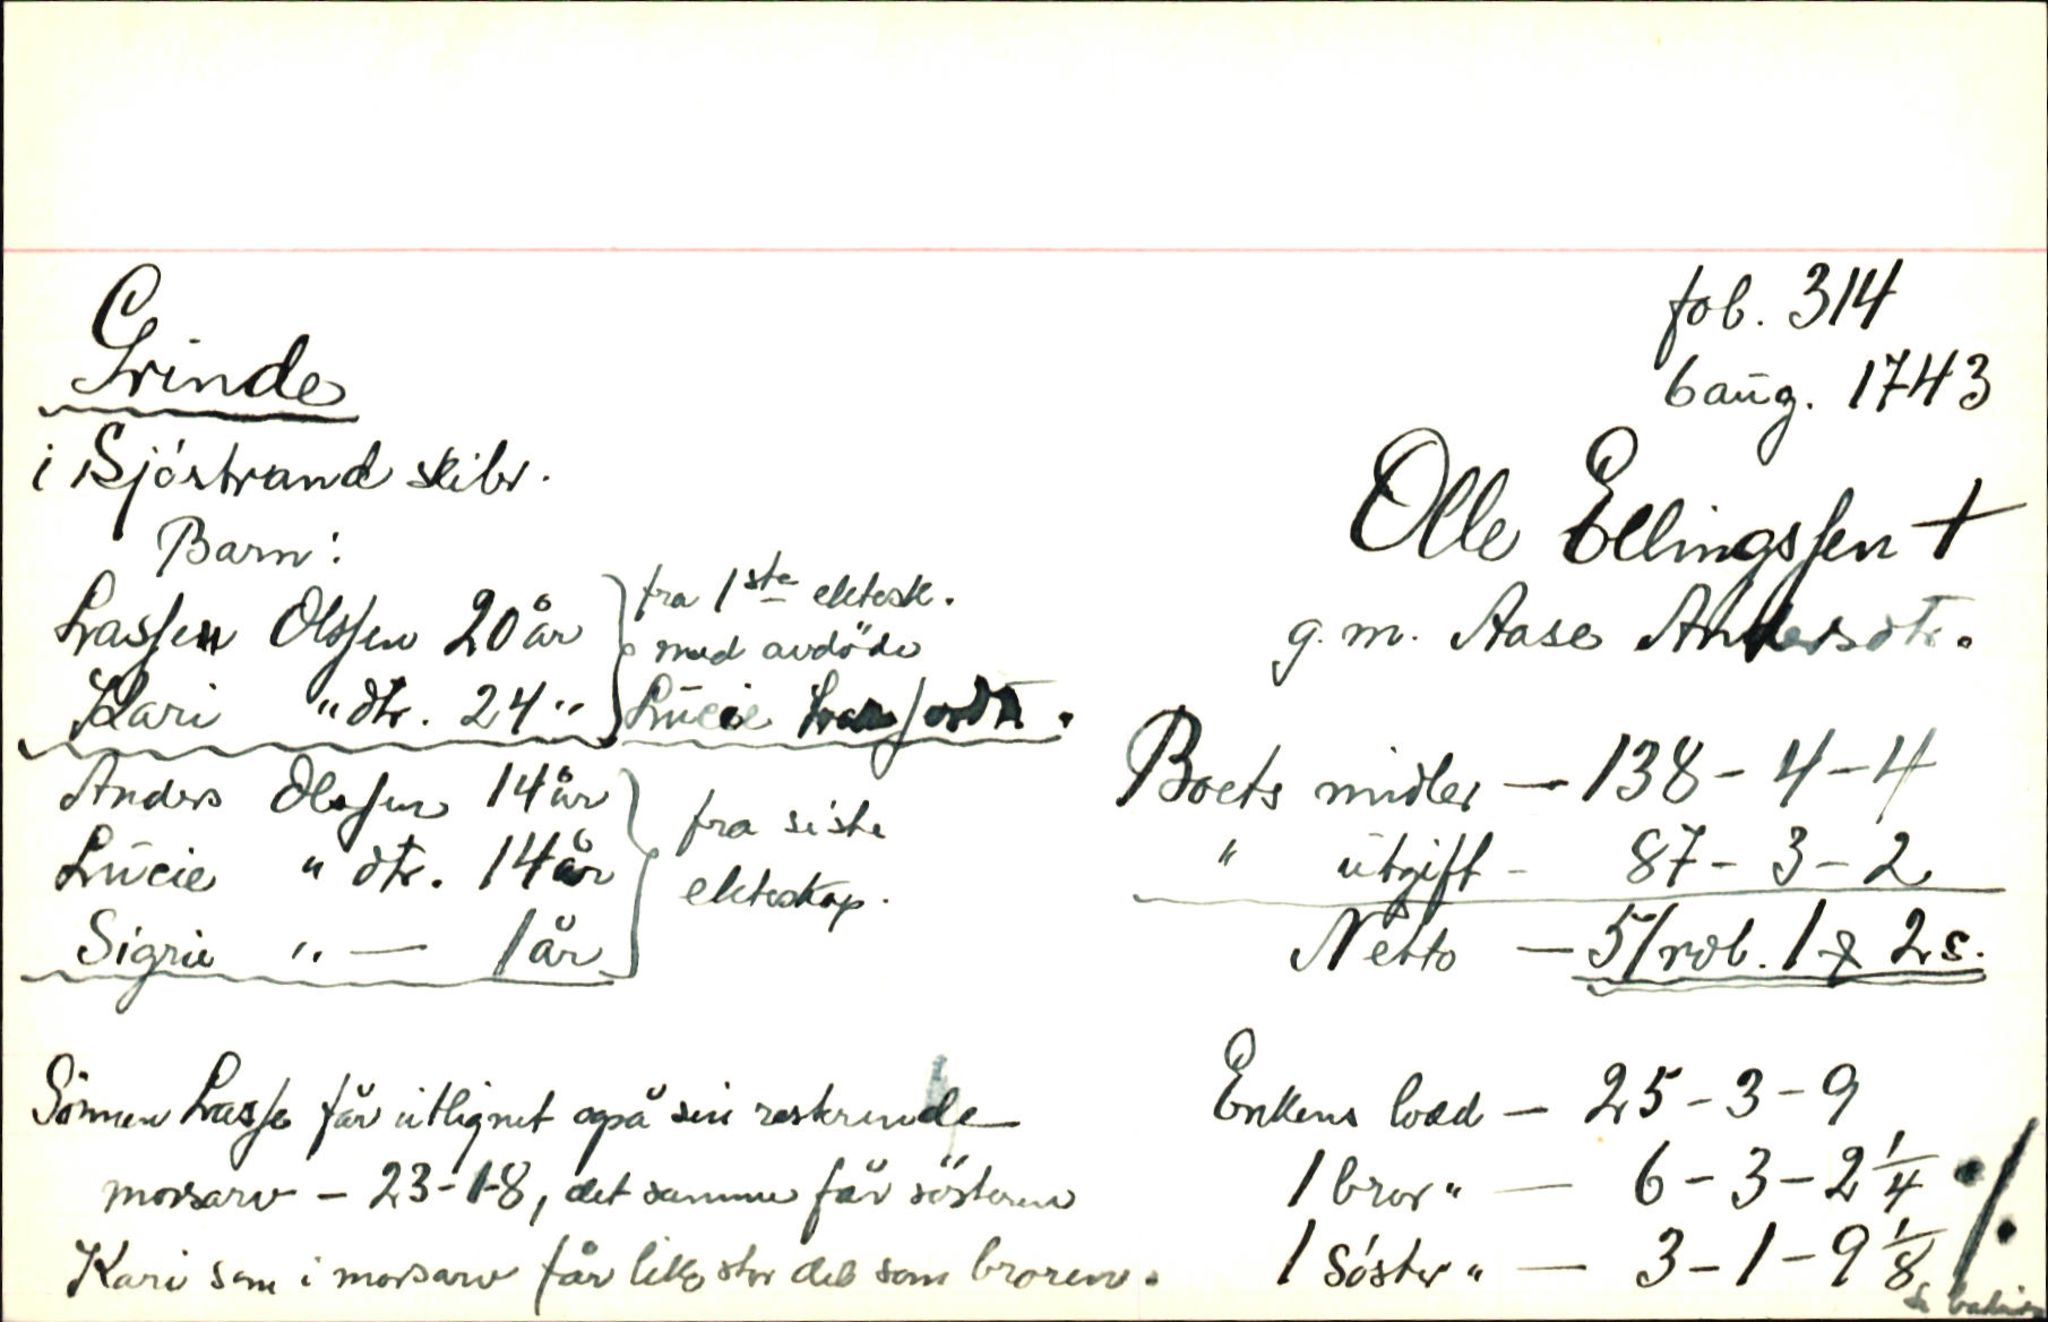 Grinde
i Sjöstrand skibr.
Barn:
Lrassen Olssen 20 år
Kari " dtr. 24 "
fra 1ste ektesk.
med avdöde
Lucie
Anders Olssen 14 år
Lucie " dtr. 14 år
Sigrie " — 1 år
fra siste
ekteskap.
Sönnen Lrasse får utlignet også sin resterende
morsarv - 23-1-8, det samme får sösteren
Kari som i morsarv får like stor del som broren.
fol. 314
6 aug. 1743
Olle Ellingssen +
g. m. Aase Andersdtr.
Boets midler — 138 - 4 - 4
" utgift - 87 - 3 - 2
Netto — 51 rdl. 1 ℔ 2 s.
Enkens lodd — 25 - 3 - 9
1 bror " — 6 - 3 - 2 1/4
1 söster " — 3 - 1 - 9 1/8
./.
se baksida